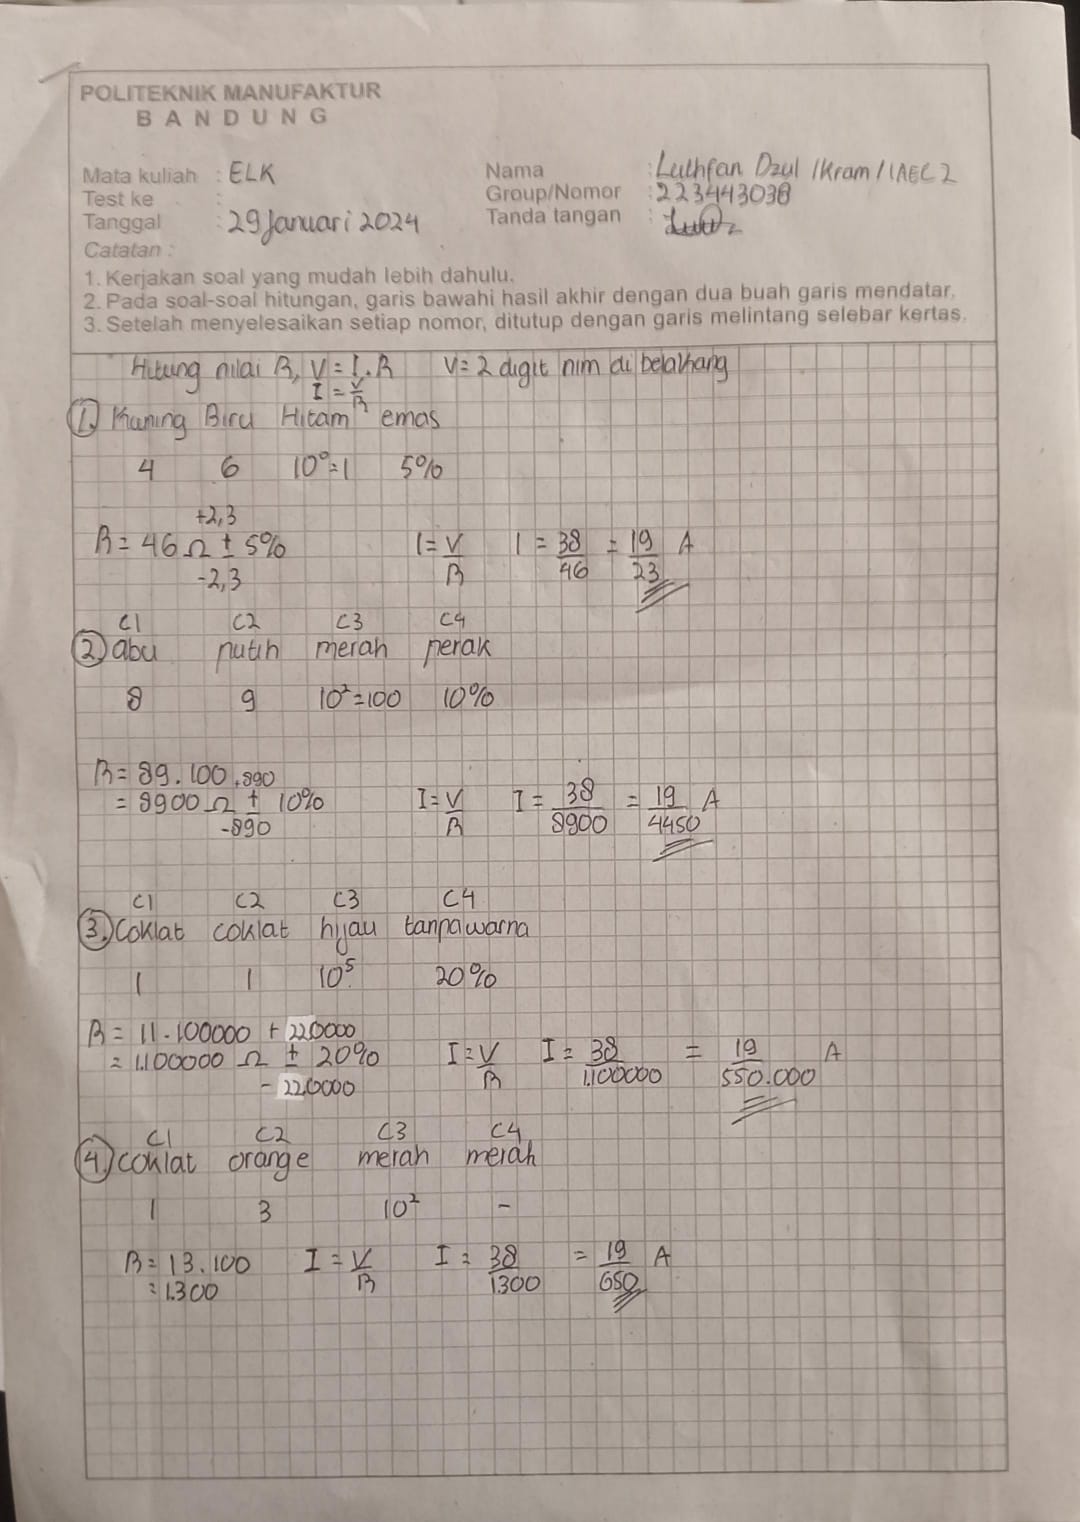 POLITEKNIK MANUFAKTUR
BANDUNG
Mata kuliah : ELK
Nama : Luthfan Dzul Ikram / 1AEC2
Test ke :
Group/Nomor : 223443038
Tanggal : 29 Januari 2024
Tanda tangan :
Catatan :
1. Kerjakan soal yang mudah lebih dahulu.
2. Pada soal-soal hitungan, garis bawahi hasil akhir dengan dua buah garis mendatar.
3. Setelah menyelesaikan setiap nomor, ditutup dengan garis melintang selebar kertas.
Hitung nilai R, V = I . R V = 2 digit nim di belakang
I = V/R
1. Kuning Biru Hitam emas
4 6 10⁰=1 5%
+2,3
R = 46 Ω ± 5% I = V/R I = 38/46 = 19/23 A
-2,3
C1 C2 C3 C4
2) abu putih merah perak
8 9 10²=100 10%
R = 89.100 +890
= 8900 Ω ± 10% I = V/R I = 38/8900 = 19/4450 A
-890
C1 C2 C3 C4
3.) Coklat coklat hijau tanpa warna
1 1 10⁵ 20%
R = 11.100000 + 220000
= 1.100000 Ω ± 20% I = V/R I = 38/1.100000 = 19/550.000 A
- 220000
C1 C2 C3 C4
4.) coklat orange merah merah
1 3 10² -
R = 13.100 I = V/R I = 38/1300 = 19/650 A
= 1.300